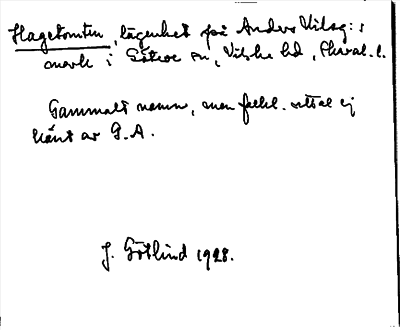 Hagetomten, lägenhet på Anders Nilsg:s
mark i Sätra sn, Vilske hd, Skarab. l.
Gammalt namn, men folkl. uttal ej
känt av G. A.
J. Götlind 1928.